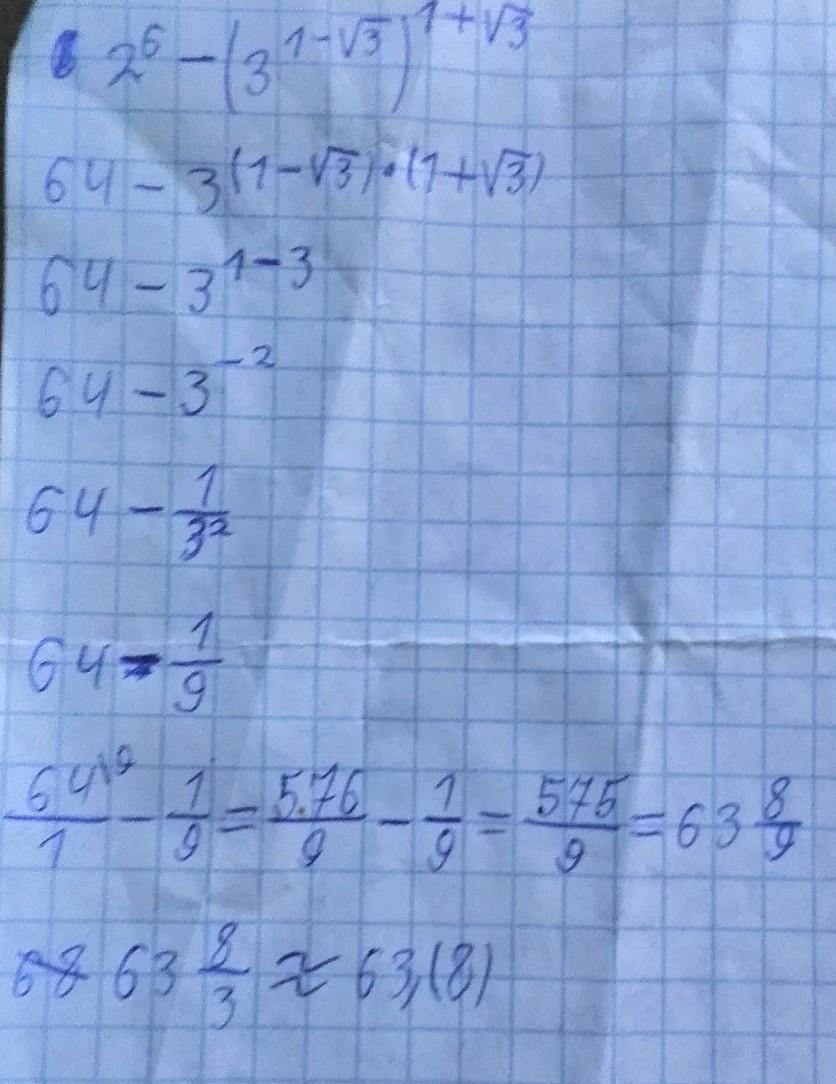 2⁶ − (3^(1−√3))^(1+√3)
64 − 3^((1−√3)·(1+√3))
64 − 3^(1−3)
64 − 3^(−2)
64 − 1/3²
64 − 1/9
64\9/1 − 1/9 = 5.76/9 − 1/9 = 575/9 = 63 8/9
63 8/3 ≈ 63,(8)